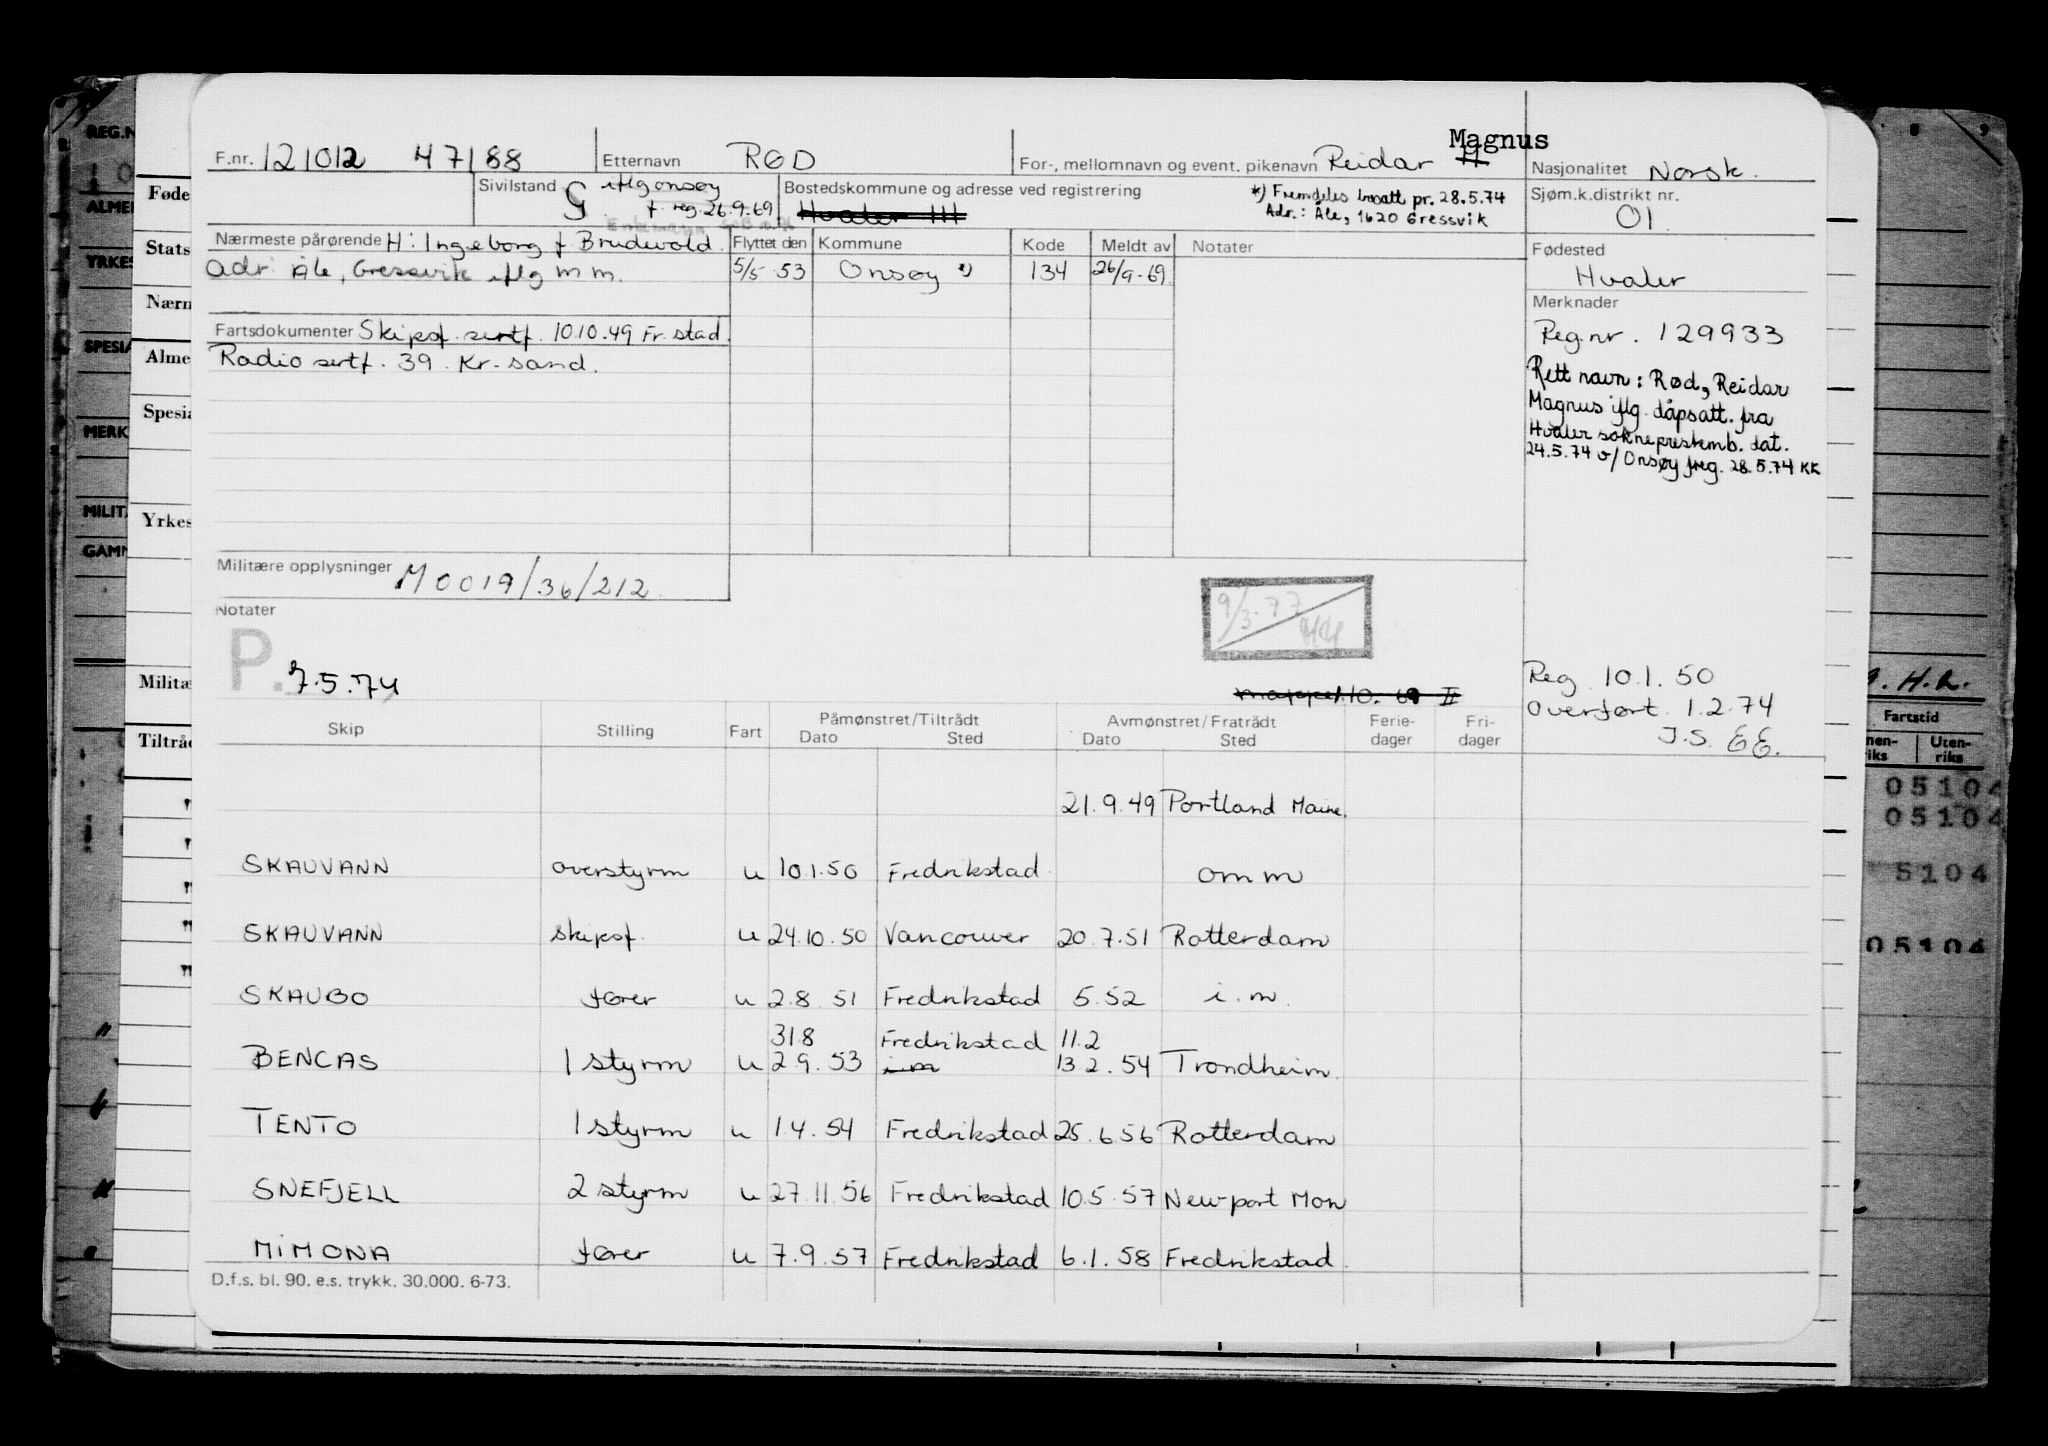 Magnus
F.nr. 121012 47188 Etternavn RØD For-, mellomnavn og event. pikenavn Reidar H Nasjonalitet Norsk.
Sivilstand G iflg onsøy
f. reg. 26.9.69
Bostedskommune og adresse ved registrering
Hvaler III
*) Fremdeles bosatt pr. 28.5.74
Adr.: Åle, 1620 Gressvik
Sjøm.k.distrikt nr.
01
Nærmeste pårørende H: Ingeborg f Brudevold Flyttet den Kommune Kode Meldt av Notater
adr Åle, Gressvik iflg m m. 5/5 53 Onsøy *) 134 26/9-69
Fødested
Hvaler
Merknader
Reg.nr. 129933
Rett navn: Rød, Reidar
Magnus iflg. dåpsatt. fra
Hvaler sokneprestemb. dat.
24.5.74 v/Onsøy freg. 28.5.74 KK
Fartsdokumenter Skipsf. sertf. 10.10.49 Fr.stad.
Radio sertf. 39. Kr.sand.
Militære opplysninger M0019/36/212
Notater
P.
7.5.74
9/3.77
Reg 10.1.50
Overført 1.2.74
J.S. EE.
Skip Stilling Fart Påmønstret/Tiltrådt Dato Sted Avmønstret/Fratrådt Dato Sted Ferie-dager Fri-dager
21.9.49 Portland Maine.
SKAUVANN overstyrm u 10.1.50 Fredrikstad omm
SKAUVANN skipsf. u 24.10.50 Vancouver 20.7.51 Rotterdam
SKAUBO fører u 2.8.51 Fredrikstad 5.52 i.m.
31.8 Fredrikstad 11.2
BENCAS 1 styrm u 2.9.53 i.m 13.2.54 Trondheim.
TENTO 1 styrm u 1.4.54 Fredrikstad 25.6.56 Rotterdam
SNEFJELL 2 styrm u 27.11.56 Fredrikstad 10.5.57 Newport Mon
MIMONA fører u 7.9.57 Fredrikstad 6.1.58 Fredrikstad
D.f.s. bl. 90. e.s. trykk. 30.000. 6-73.
REG.N
ALMEI
YRKES
SPESIA
MERK
MILIT
GAMM
Føde
Stats
Nærn
Alme
Spesia
Yrkes
Militæ
Tiltråd
H.L.
Fartstid
nen-riks Uten-riks
05104
05104
5104
05104